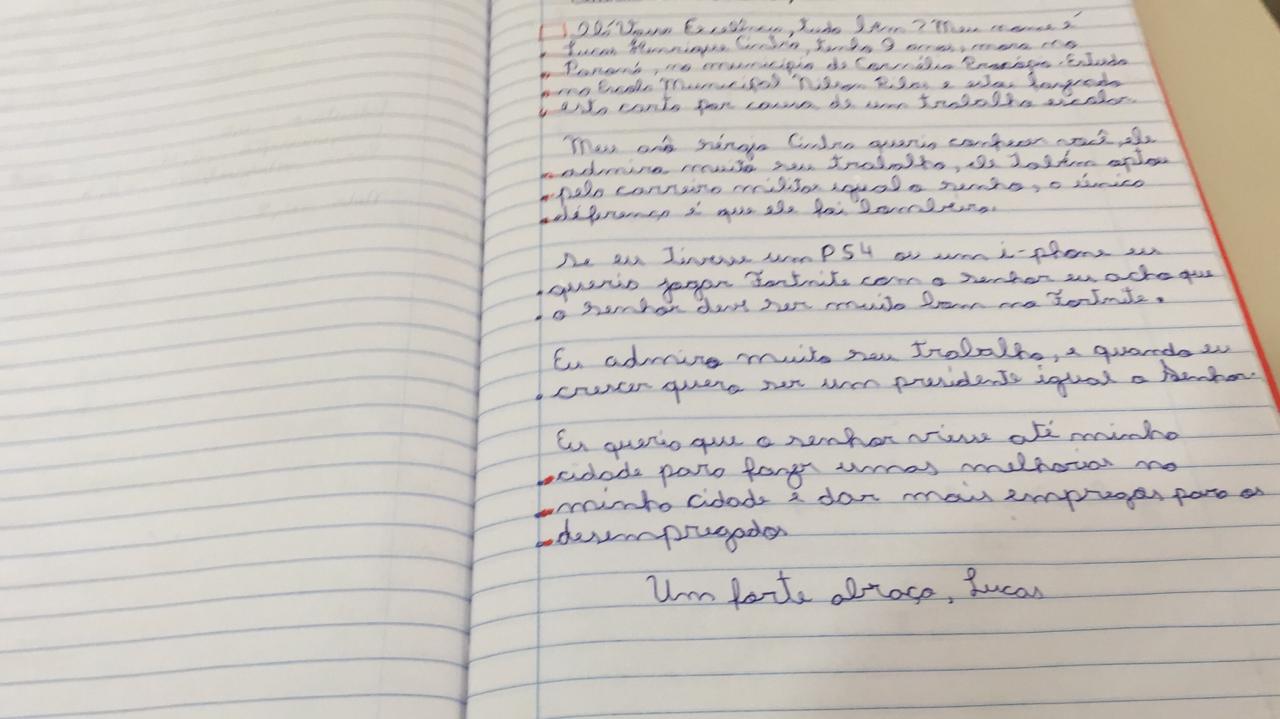 Olá Vossa Excelência, tudo bem? Meu nome é
Lucas Henrique Cintra, tenho 9 anos, moro no
Paraná, no município de Cornélio Procópio. Estudo
na Escola Municipal Nilson e estou
esta carta por causa de um trabalho escolar.
Meu avô Sérgio Cintra queria conhecer você, ele
admira muito seu trabalho, ele
pela carreira militar igual o senho, a única
diferença é que ele foi bombeiro.
Se eu tivesse um PS4 ou um i-phone eu
queria jogar Fortnite com o senhor eu acho que
o senhor deve ser muito bom no Fortnite.
Eu admiro muito seu trabalho, e quando eu
crescer quero ser um presidente igual o Senhor.
Eu queria que o senhor viesse até minha
cidade para fazer umas melhorias na
minha cidade e dar mais empregos para os
desempregados
Um forte abraço, Lucas